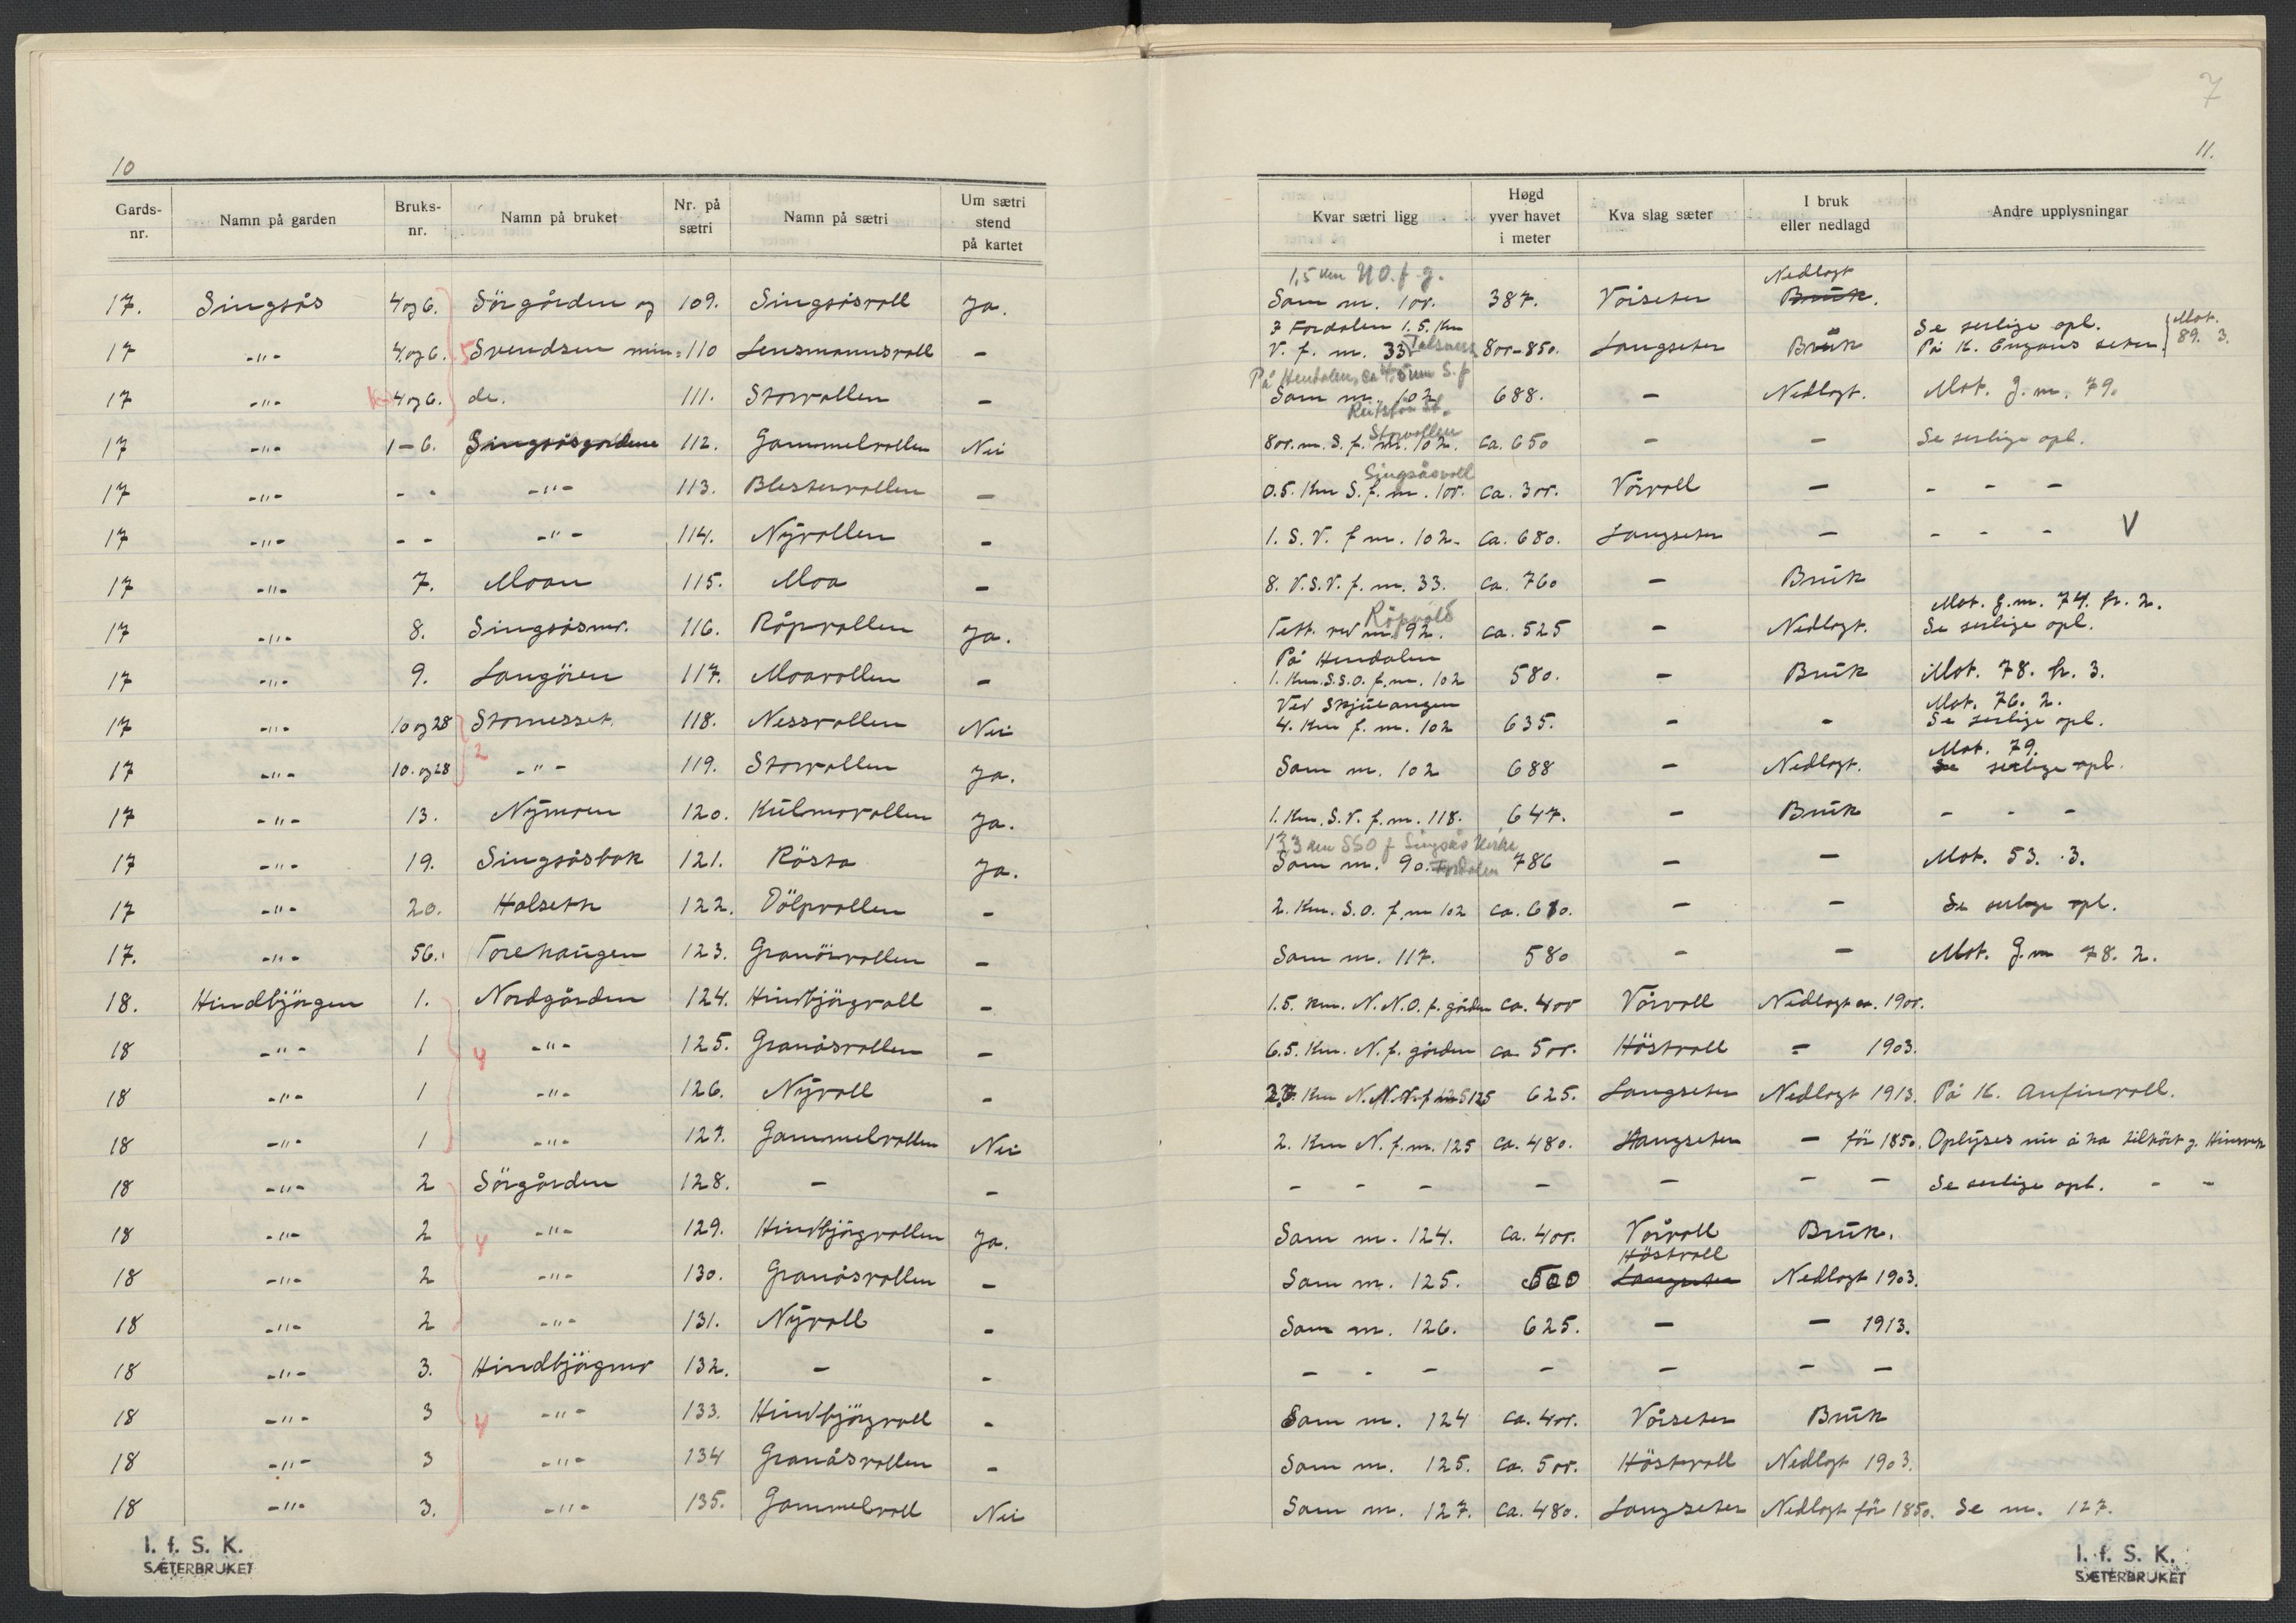 7
10
11.
Gards-nr. Namn på garden Bruks-nr. Namn på bruket Nr. på sætri Namn på sætri Um sætri stend på kartet
Kvar sætri ligg Høgd yver havet i meter Kva slag sæter I bruk eller nedlagd Andre upplysningar
1,5 km NO. f. g. Nedlagt
17. Singsås 4 og 6. Sörgården og 109. Singsåsvoll Ja. Som nr. 100. 387. Vårseter Bruk.
7 Fordalen 1.5. Km Se serlige opl. Mot. 89. 3.
17 -"- 4 og 6. 5 Svendsen min= 110 Lensmannsvoll - V. f. nr. 33 800-850. Langseter Bruk På K. Engans seter.
På Hendalen, ca 4,5 km S. f.
17 -"- 4 og 6. do. 111. Storvollen - Som nr. 102 688. - Nedlagt. Mot. g.nr. 79.
Storvollen
17 -"- 1-6. Singsåsgardene 112. Gammelvollen Nei 800. m. S. f. nr. 102. ca. 650 - - Se serlige opl.
Singsåsvoll
17 -"- - - -"- 113. Blestervollen - 0.5. Km S. f. nr. 100. ca. 300. Vårvoll - - - -
17 -"- - - -"- 114. Nyvollen - 1. S. V. f nr. 102. ca. 680. Langseter - - - - V
17 -"- 7. Moan 115. Moa - 8. V.S.V. f. nr. 33. ca. 760 - Bruk
Mot. g.nr. 74. br. 2.
17 -"- 8. Singsåsmr. 116. Råpvollen Ja. Tett. ved nr. 92. ca. 525 - Nedlagt. Se serlige opl.
På Hendalen
17 -"- 9. Langören 117. Moavollen - 1. Km. S.S.O. f. nr. 102 580. - Bruk Mot. 78. br. 3.
Ved Skjulangen Mot. 76. 2.
17 -"- 10 og 28 Stornesset. 118. Nessvollen Nei 4. Km f. nr. 102 635. - - Se serlige opl.
2 Mot. 79.
17 -"- 10. og 28 -"- 119. Storvollen Ja. Som nr. 102 688 - Nedlagt. Se serlige opl.
17 -"- 13. Nymoen 120. Kulmovollen Ja. 1. Km. S.V. f. nr. 118. 647. - Bruk - - -
13,3 km SSO f Singsås kirke
17 -"- 19. Singsåsbak 121. Rösta Ja. Som nr. 90. Fordalen 786 - - Mot. 53. 3.
17 -"- 20. Halseth 122. Dölpvollen - 2. Km. S.O. f. nr 102 ca. 610. - - Se serlige opl.
17. -"- 56. Torehaugen 123. Granörvollen - Som nr. 117. 580 - - Mot. G.nr 78. 2.
18. Hindbjörgen 1. Nordgården 124. Hindbjörgvoll - 1.5. Km. N.N.O. f. gården ca. 400 Vårvoll Nedlagt ca. 1900.
18 -"- 1 4 -"- 125. Granåsvollen - 6.5. Km. N. f. gården ca 500. Höstvoll = 1903.
18 -"- 1 -"- 126. Nyvoll - Km N. N.V. f 125 625. Langseter Nedlagt 1913. På K. Anfinvoll.
18 -"- 1 -"- 127. Gammelvollen Nei 2. Km N. f. nr. 125 ca. 480. Langseter - för 1850. Oplyses nu å ha tilhört g.
18 -"- 2 Sörgården 128. - - - - - - - - - Se serlige opl. - -
18 -"- 2 4 -"- 129. Hindbjörgvollen Ja. Som nr. 124. ca. 400. Vårvoll Bruk.
Höstvoll
18 -"- 2 -"- 130. Granåsvollen - Som nr. 125. 500 Langseter Nedlagt 1903.
18 -"- 2 -"- 131. Nyvoll - Som nr. 126. 625. - - 1913.
18 -"- 3. Hindbjörgmr 132. - - - - - - - - -
18 -"- 3 4 -"- 133. Hindbjörgvoll - Som nr. 124 ca. 400. Vårseter Bruk
18 -"- 3 -"- 134 Granåsvollen - Som nr. 125. ca. 500. Höstvoll Nedlagt 1903.
18 -"- 3. -"- 135. Gammelvoll Nei Som nr. 127. ca. 480. Langseter Nedlagt för 1850. Se nr. 127.
I. f. S. K.
SÆTERBRUKET
I. f. S. K.
SÆTERBRUKET